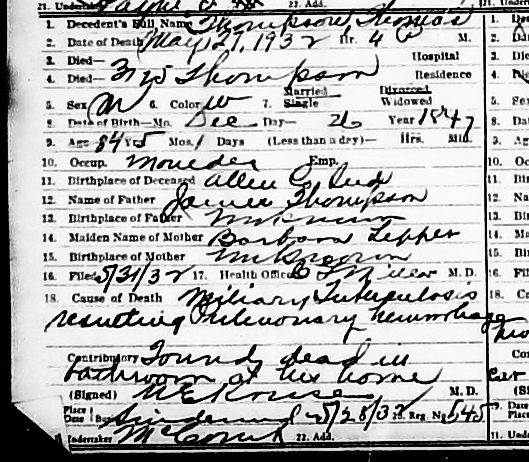 21. Undertaker 22. Add.
1. Decedent's Full Name Thompson, Thomas
2. Date of Death May 27, 1932 Hr. 4 P M.
3. Died— Hospital
4. Died— Thompson Residence
5. Sex M 6. Color W 7. Married Single Divorced Widowed
8. Date of Birth—Mo. Dec Day— 26 Year 1847
9. Age 84 Yrs 5 Mos. 1 Days (Less than a dry)— Hrs. Min.
10. Occup. Moneder Emp.
11. Birthplace of Deceased Allen Co Ind
12. Name of Father James Thompson
13. Birthplace of Father Unknown
14. Maiden Name of Mother Barbara Lepper
15. Birthplace of Mother Unknown
16. Filed 5/31/32 17. Health Officer Miller M. D.
18. Cause of Death Miliary Tuberculosis
resulting Pulmonary hemorrhage
Contributory Found dead in
bathroom at his home
(Signed) M. D.
Place
Date Bur. Lindenwood 5/28/32 20. Reg. No. 545
Undertaker McComb 22. Add.